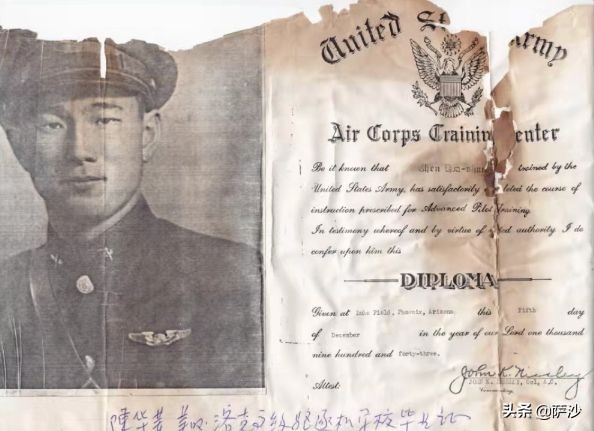 United St Army
Air Corps Training Center
Be it known that trained by the
United States Army, has satisfactorily leted the course of
instruction prescribed for Advanced Pilot Training.
In testimony whereof and by virtue of ed authority I do
confer upon him this
DIPLOMA
Given at Luke Field, Phoenix, Arizona this Fifth day
of December in the year of our Lord one thousand
nine hundred and forty-three.
John K. Nissley
Attest: JOHN K. NISSLEY, Col., A.C.
Commanding
陳华薰 美国洛克 级驱逐机学校毕业证
头条 @萨沙